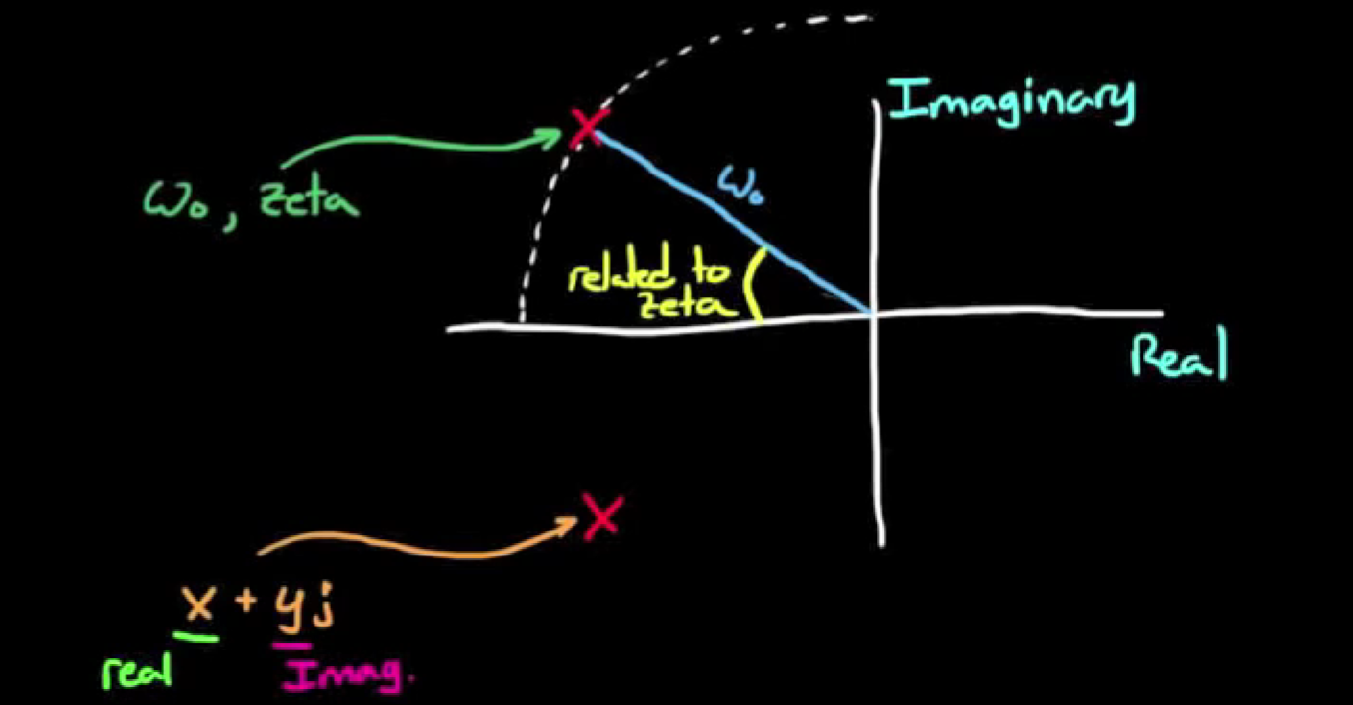 Imaginary
ω₀
ω₀, zeta
related to
zeta
Real
x + yj
real
Imag.